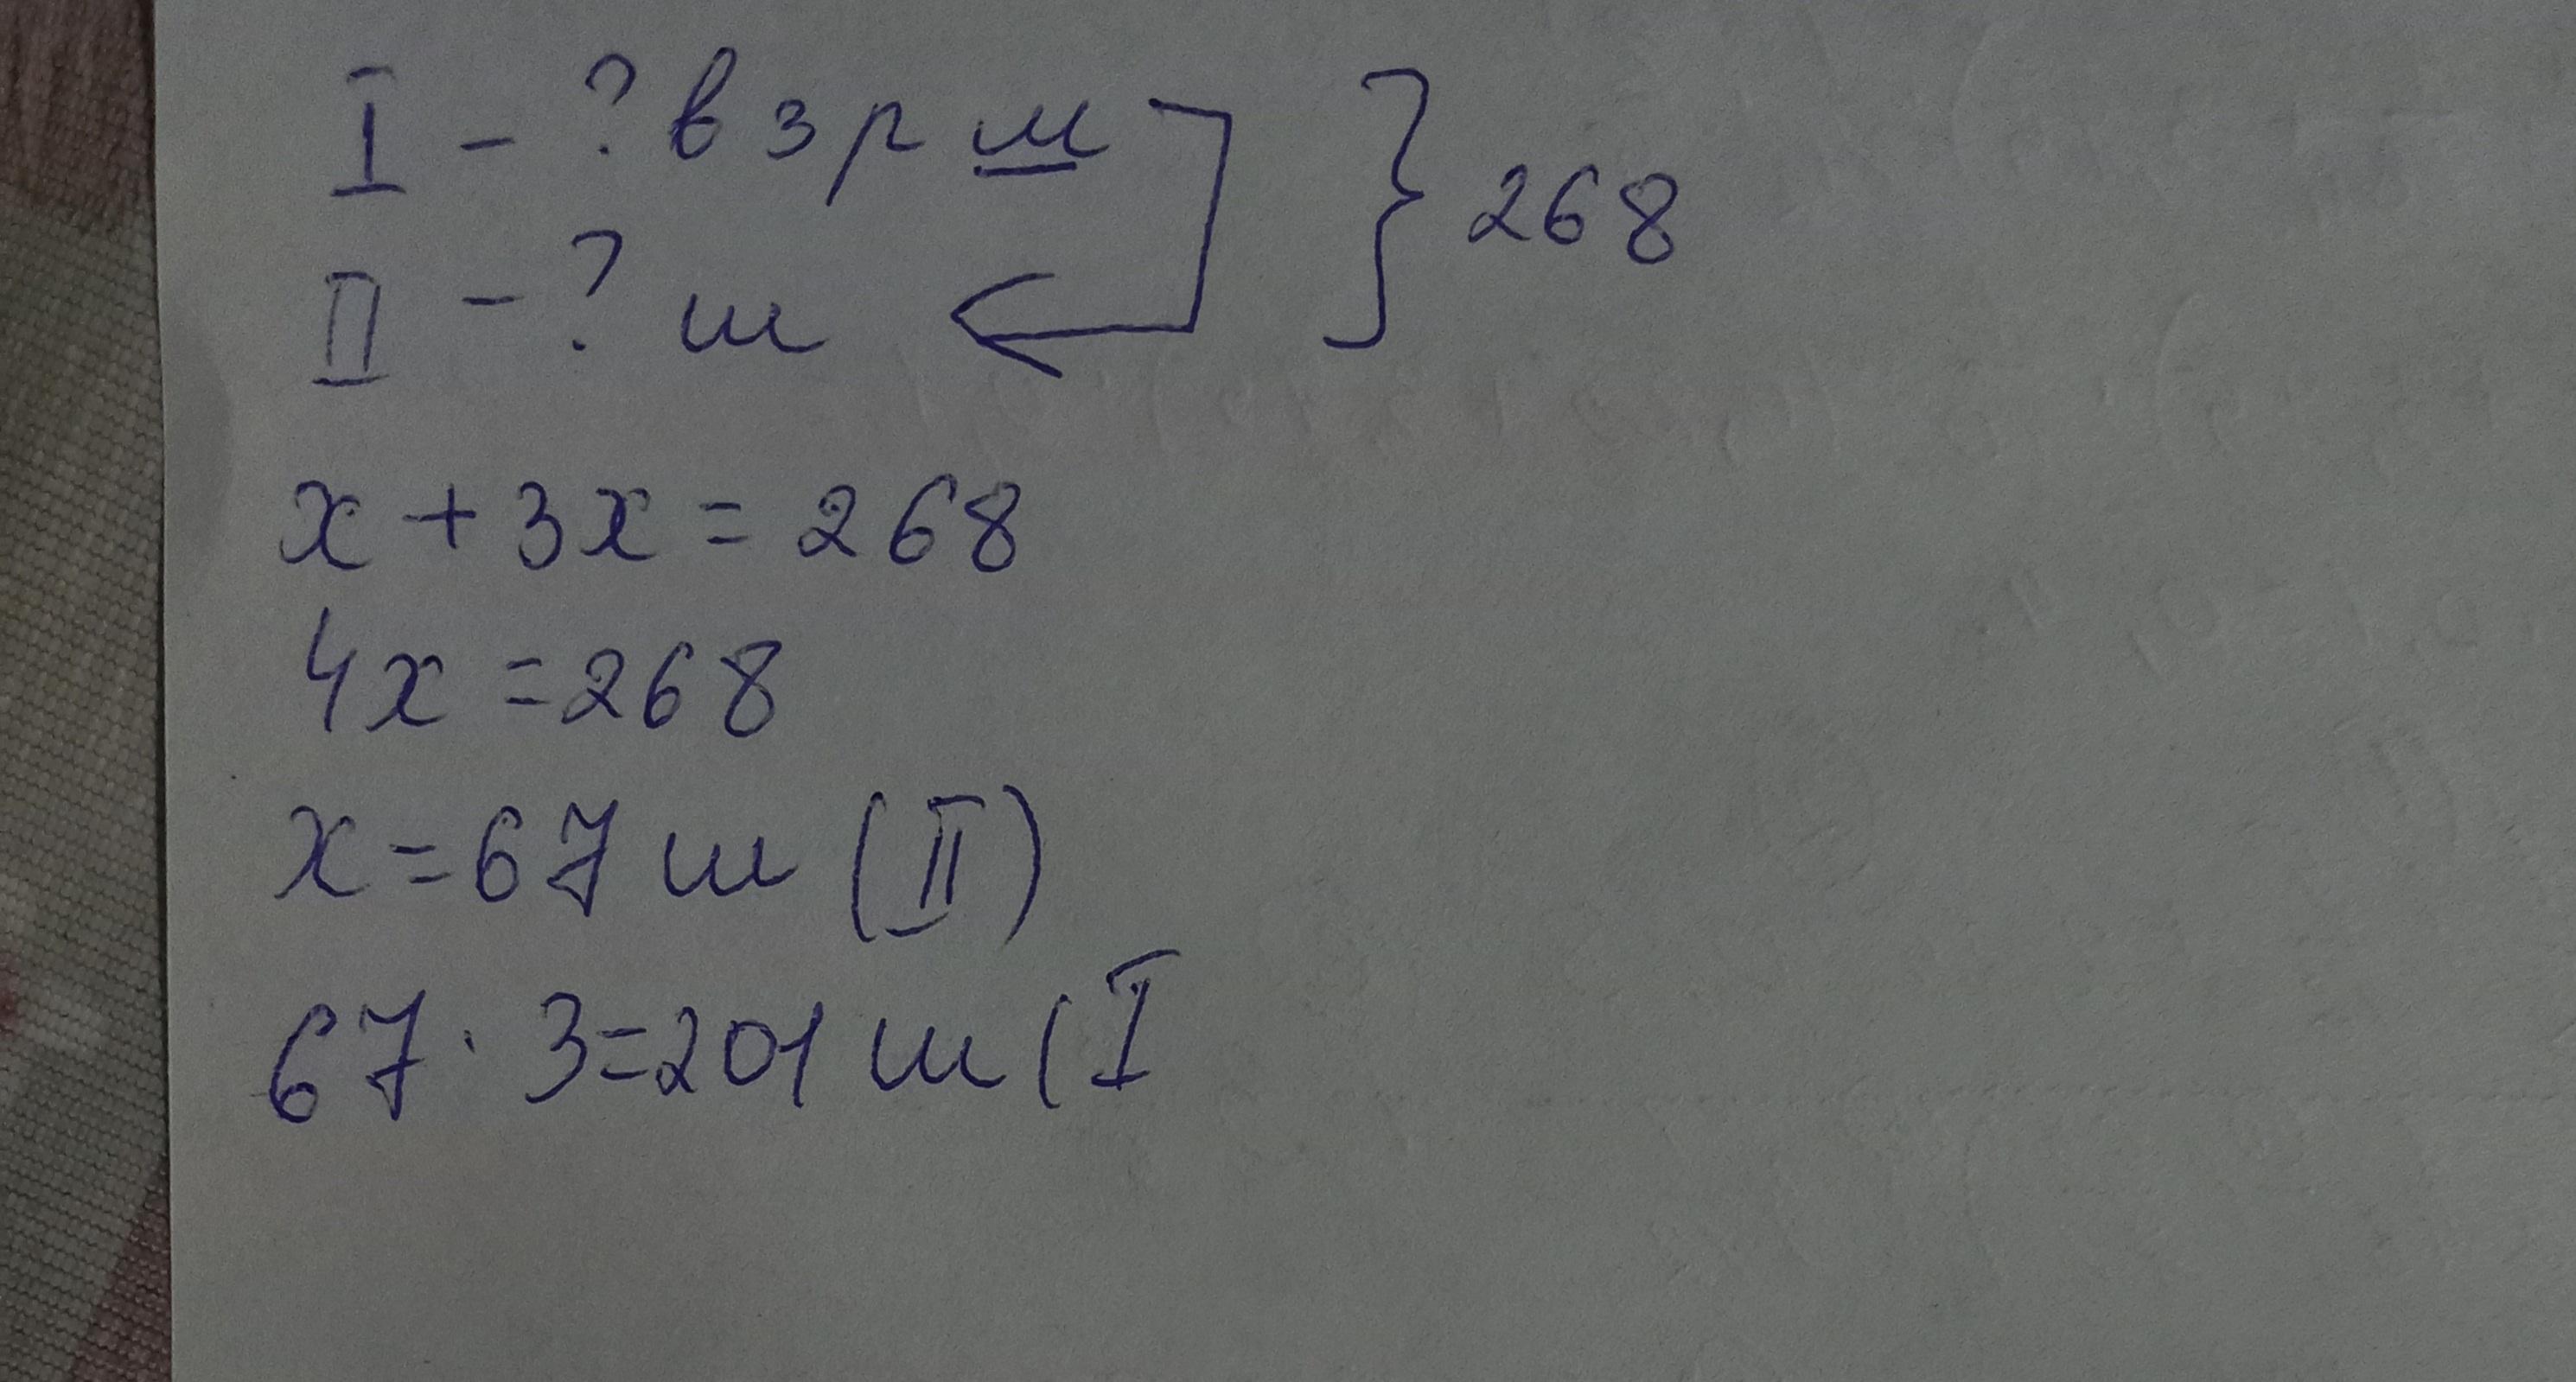 I - ? в 3 р ш } 268
II - ? ш
x + 3x = 268
4x = 268
x = 67 ш (II)
67 · 3 = 201 ш (I